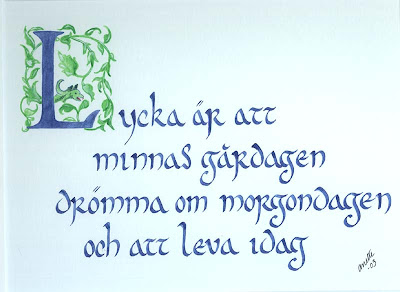 Lycka är att
minnas gårdagen
drömma om morgondagen
och att leva idag
anette
.03